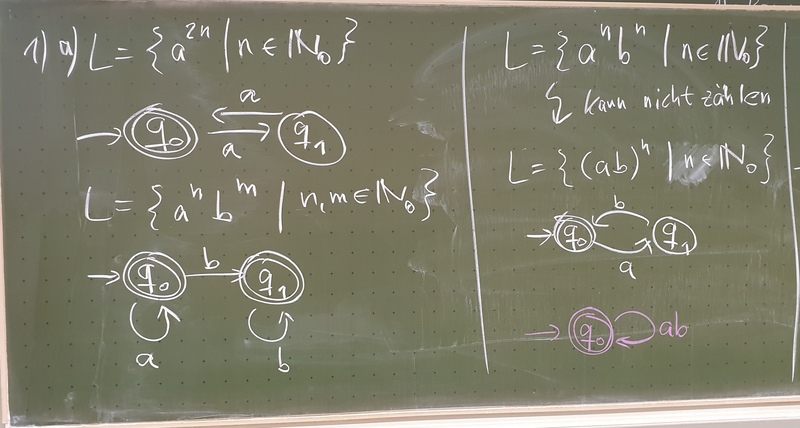 1) a) L = {a²ⁿ | n ∈ ℕ₀}
a
q₀ q₁
a
L = {aⁿ bᵐ | n,m ∈ ℕ₀}
q₀ b q₁
a b
L = {aⁿbⁿ | n ∈ ℕ₀}
↯ kann nicht zählen
L = {(ab)ⁿ | n ∈ ℕ₀}
b
q₀ q₁
a
q₀ ab